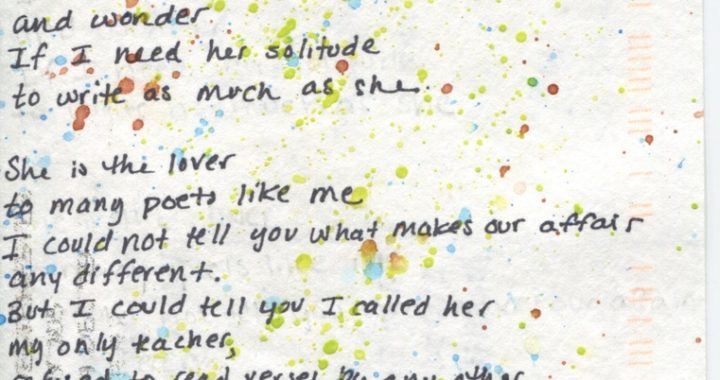 and wonder
If I need her solitude
to write as much as she.
She is the lover
to many poets like me
I could not tell you what makes our affair
any different.
But I could tell you I called her
my only teacher,
to read verses by any other